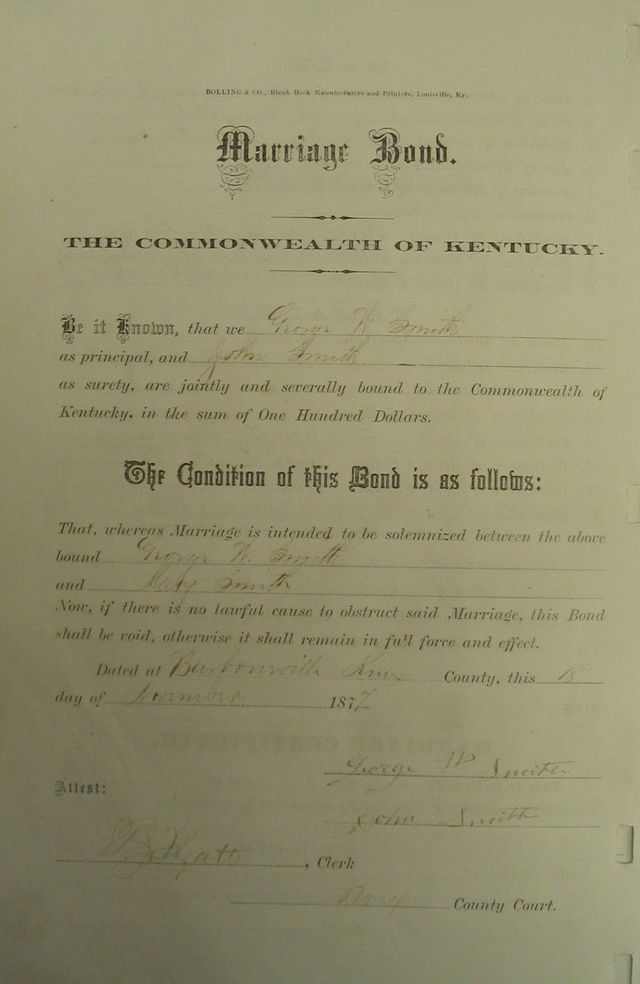 BOLLING & CO., Blank Book Manufacturers and Printers, Louisville, Ky.
Marriage Bond.
THE COMMONWEALTH OF KENTUCKY.
Be it Known, that we George W Smith
as principal, and John Smith
as surety, are jointly and severally bound to the Commonwealth of
Kentucky, in the sum of One Hundred Dollars.
The Condition of this Bond is as follows:
That, whereas Marriage is intended to be solemnized between the above
bound George W. Smith
and Mary Smith
Now, if there is no lawful cause to obstruct said Marriage, this Bond
shall be void, otherwise it shall remain in full force and effect.
Dated at Barbourville Knox County, this
day of 1877
George W Smith
Attest:
John Smith
, Clerk
Knox County Court.